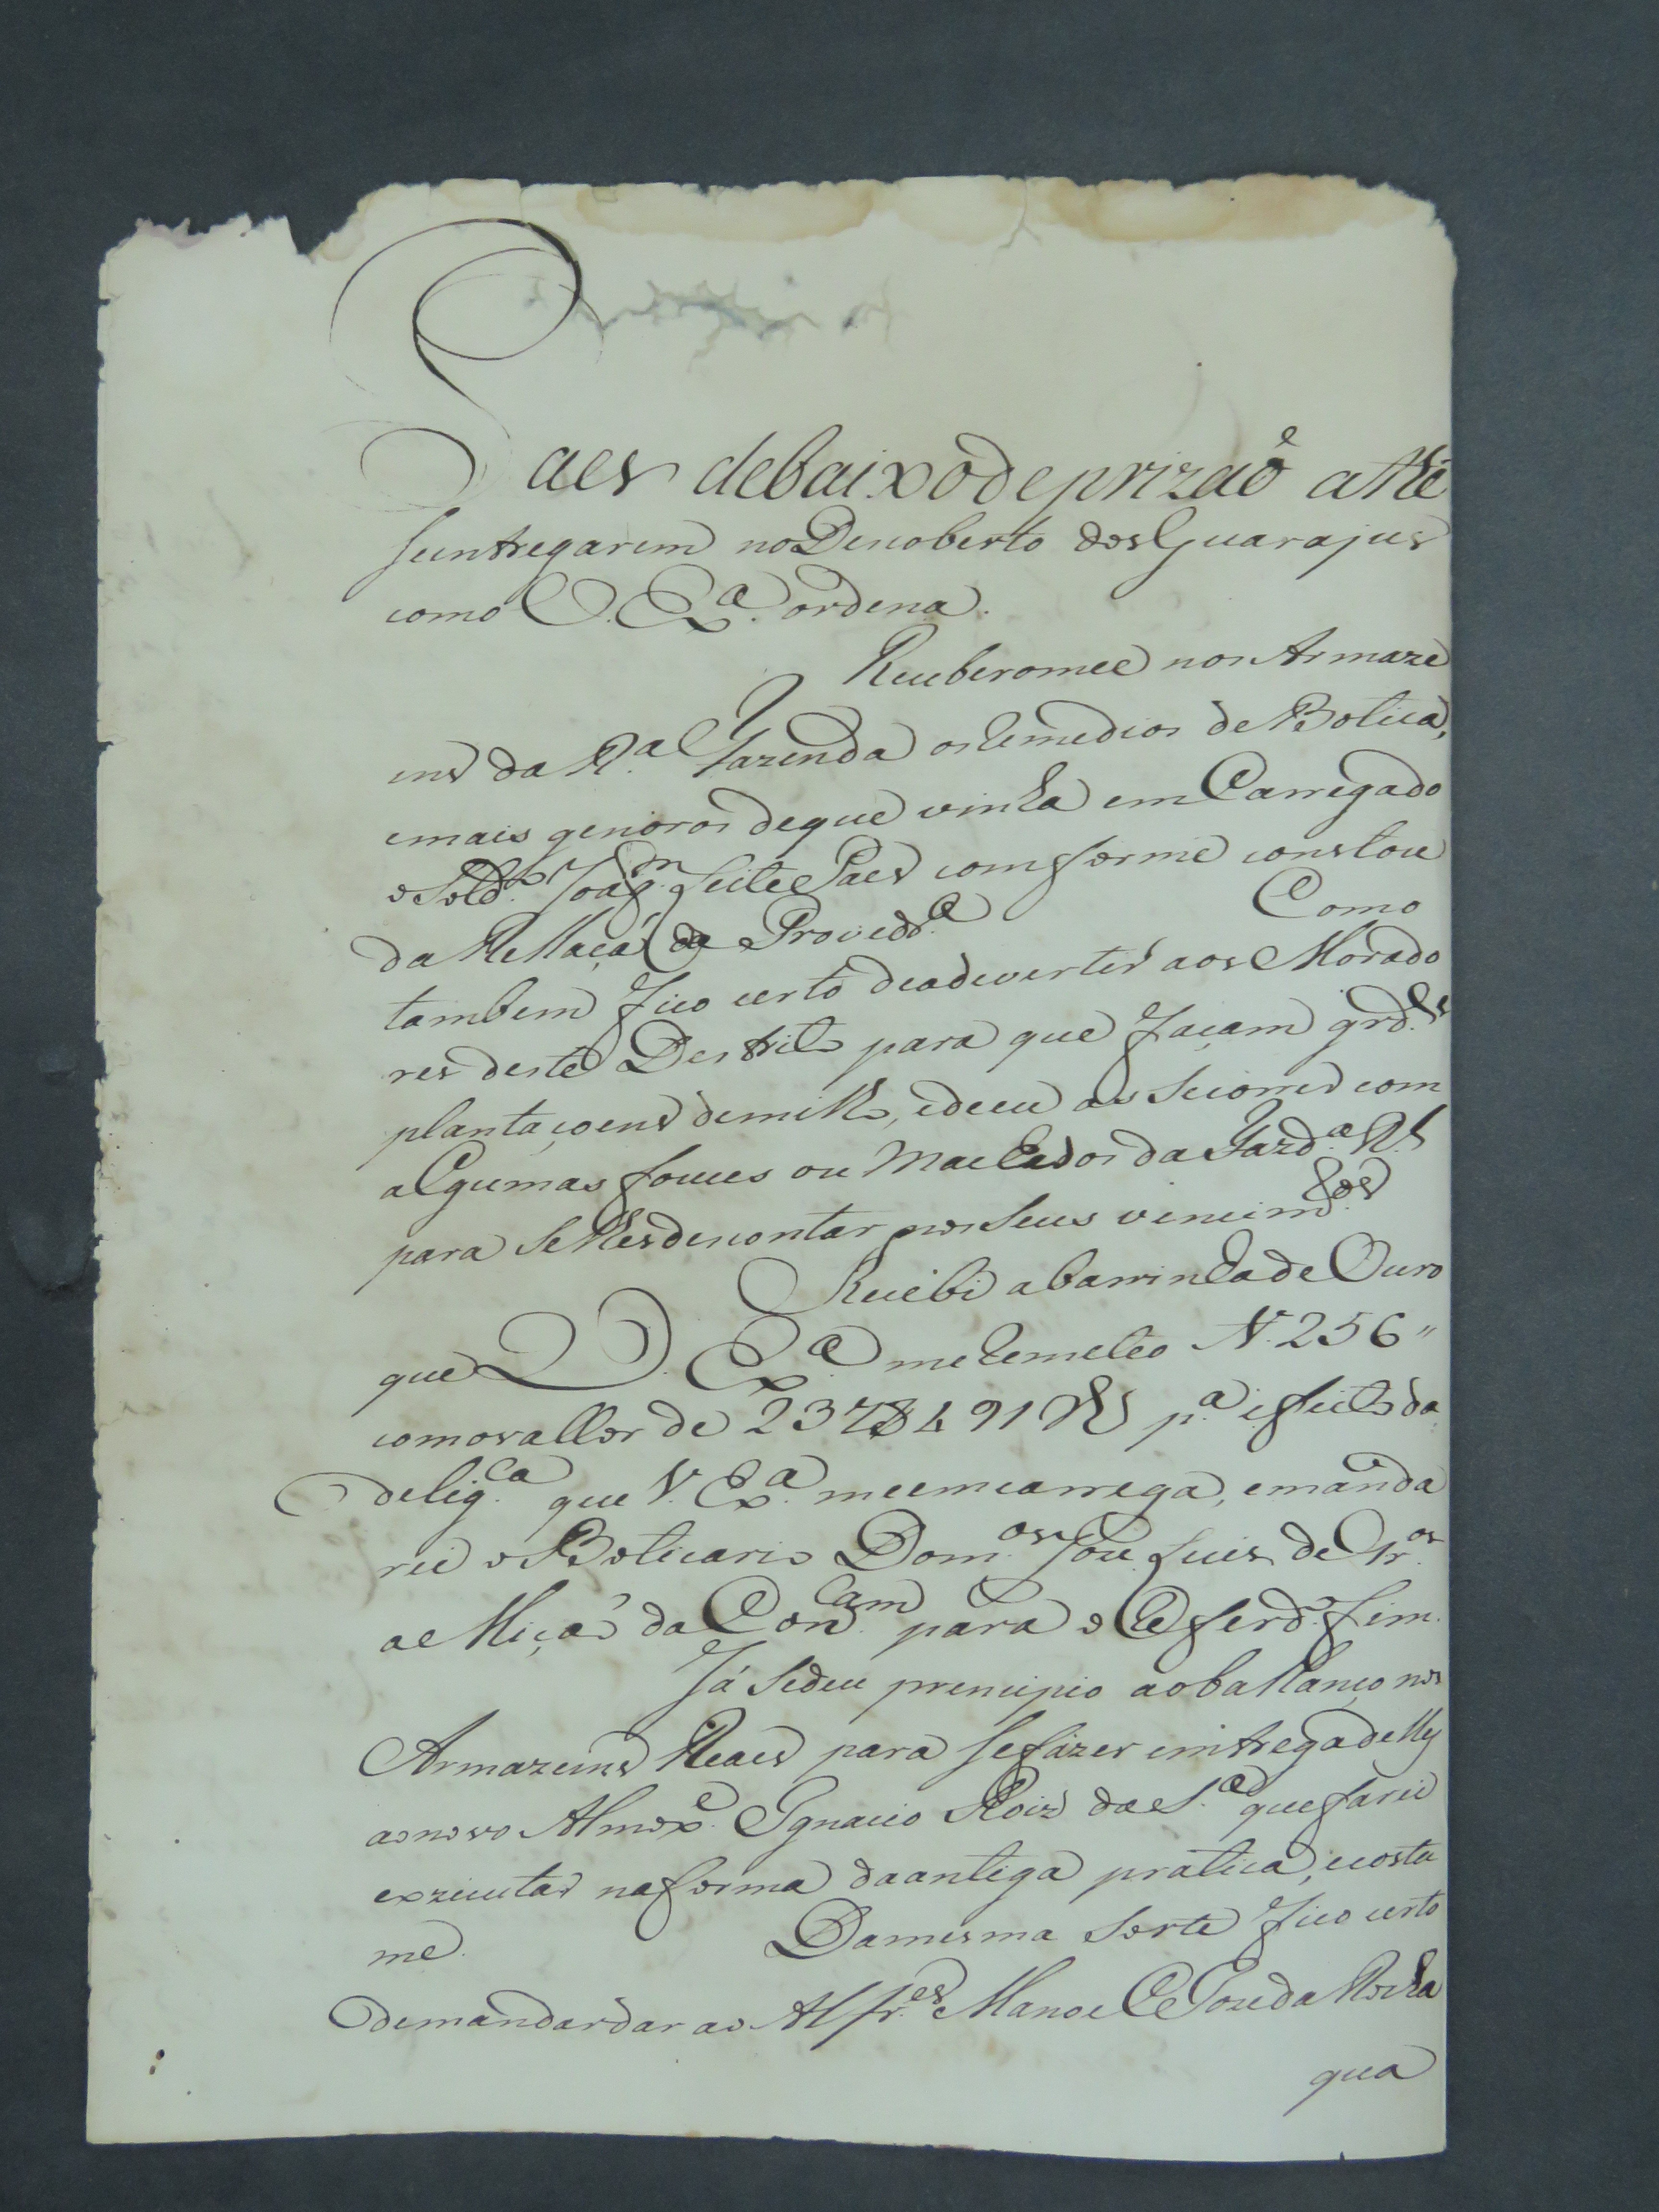 aes debaixo de prizaõ athé
se intregarem no Descoberto dos Guarajus
como V. Ex.ª ordena.
Receberomce nos Armazé
ens da R.ª Fazenda os remedios de Botica,
e mais generos de que vinha em Carregado
o Sold.º Joaq.m Leite Paes comforme constou
da Rellaçaõ da Provedr.ª Como
tambem fico certo de adevertir aos Morado
res deste Destrito para que façam grd.es
plantaçoens de milho, e de eu os Secorrer com
algumas fouces ou Machados da Fazd.ª R.l
para Se lhes descontar nos Seus vencim.tos
Recebi a barrinha de Ouro
que V. Ex.ª me remeteo N. 256"
com o vallor de 237$491 Rs p.ª efeito da
delig.ca que V. Ex.ª me emcarrega, e manda
rei o Boticario Dom.os Joze Luis de Ar.os
a Miçaõ da Con.cam para o referd.º fim.
Já Se deu prencipio ao ballanço nos
Armazeins Reaes para Se fazer emtrega delles
ao novo Almox.e Ignacio Roiz da S.ª que farei
exzecutar na forma da antiga pratica, e costu
me. Da mesma Sorte fico certo
de mandar dar ao Alfr.es Manoel Joze da Rocha
qua